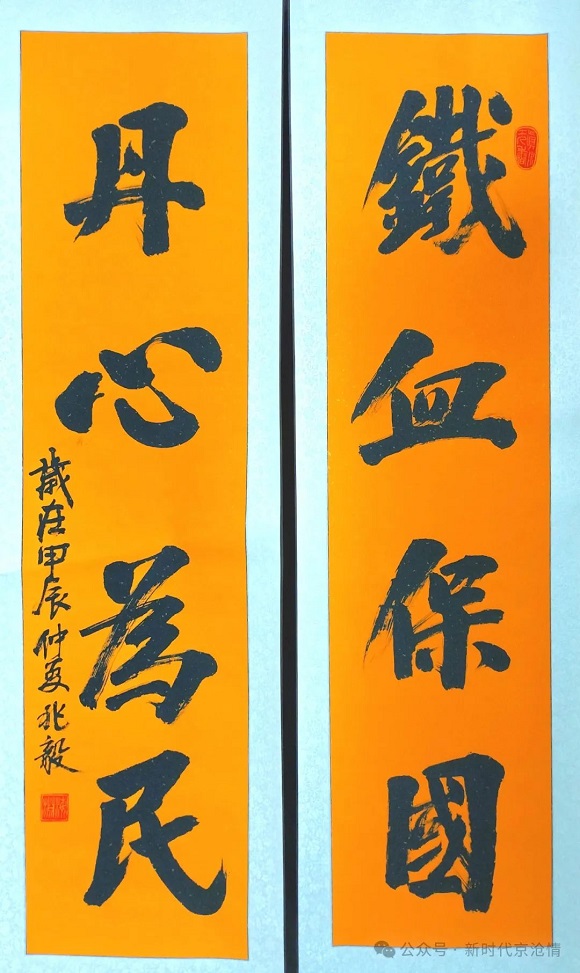 鐵血保國
丹心為民
歲在甲辰仲夏兆毅
公众号·新时代京沧情